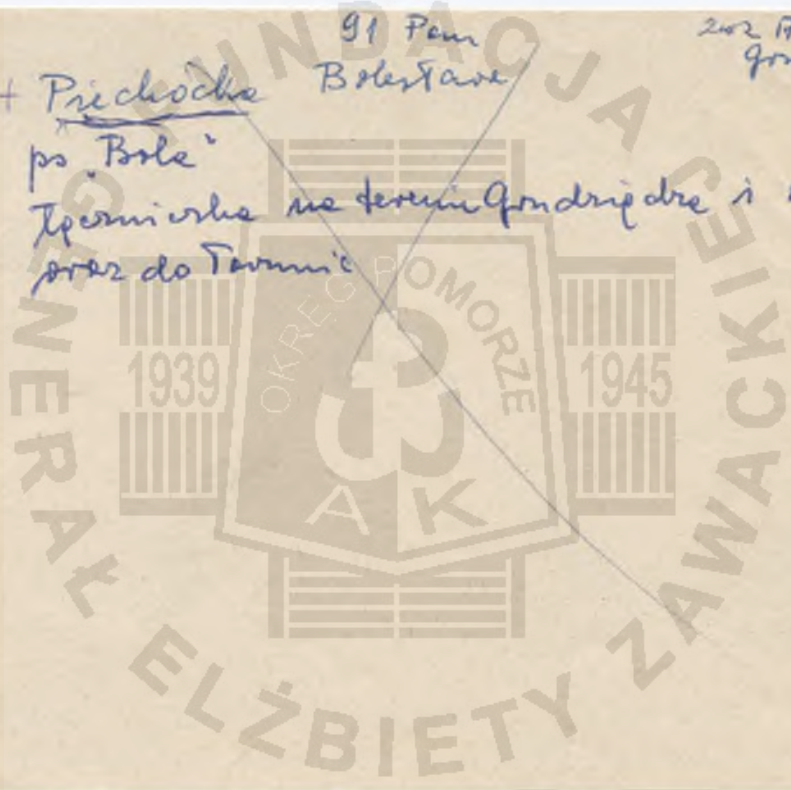 91 Pom
+ Piechocka Bolesława
ps "Bola"
Łączniczka na terenie Grudziądza i
oraz do Torunia
FUNDACJA GENERAŁ ELŻBIETY ZAWACKIEJ
OKRĘG POMORZE
1939 1945
AK